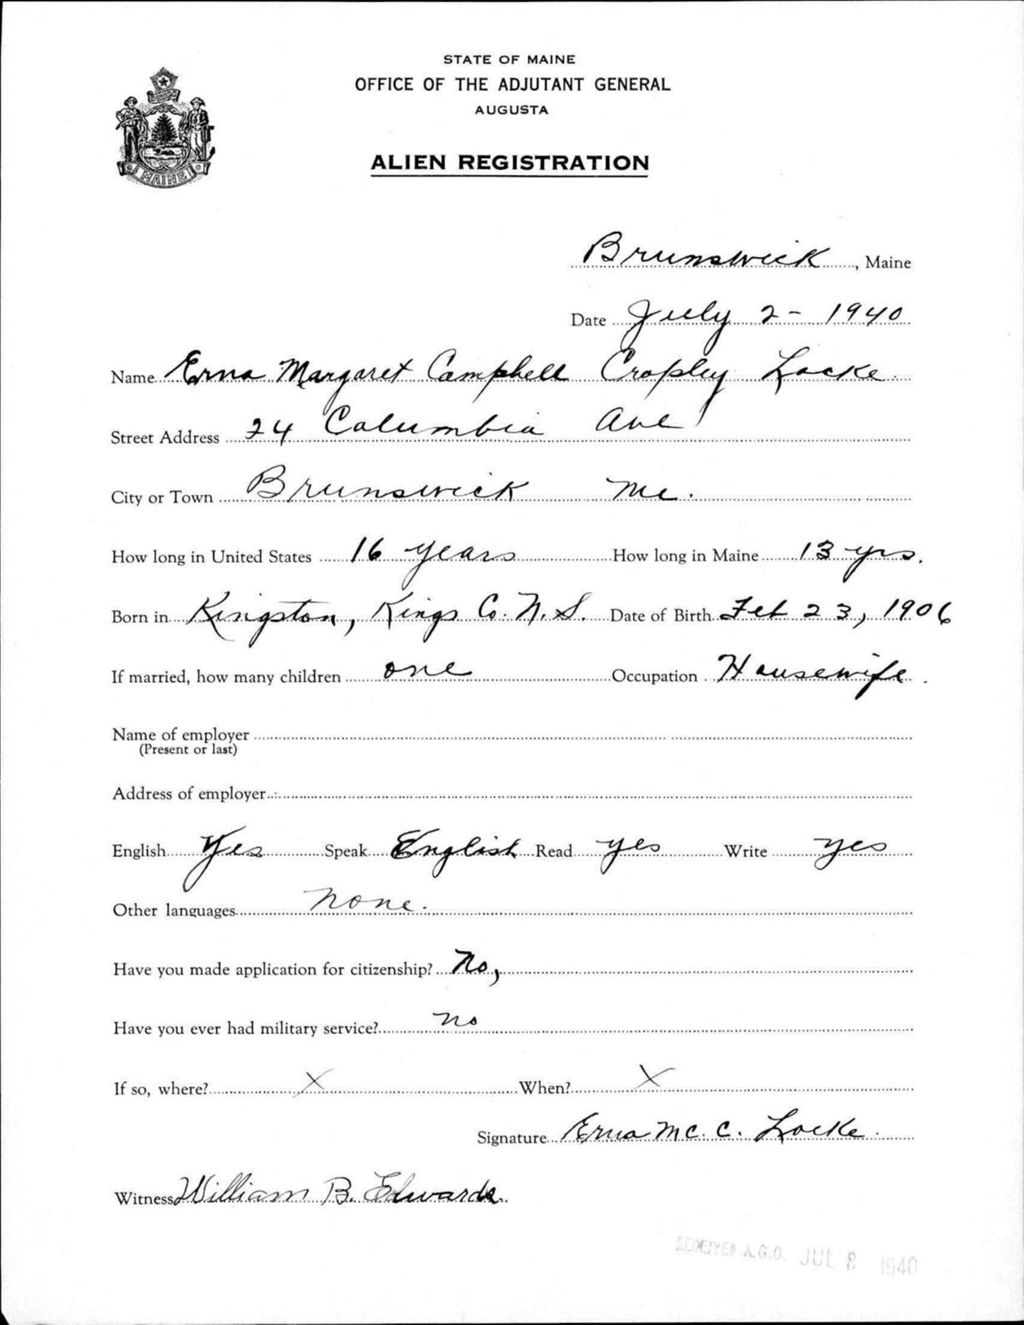 STATE OF MAINE
OFFICE OF THE ADJUTANT GENERAL
AUGUSTA
ALIEN REGISTRATION
MAINE
Brunswick, Maine
Date July 2 - 1940
Name Erna Margaret Campbell Cropley Locke.
Street Address 24 Columbia Ave
City or Town Brunswick Me.
How long in United States 16 years How long in Maine 13 yrs.
Born in Kingston, Kings Co. N. S. Date of Birth Feb 23, 1906
If married, how many children one Occupation Housewife.
Name of employer
(Present or last)
Address of employer
English Yes Speak English Read yes Write yes
Other languages None.
Have you made application for citizenship? No,
Have you ever had military service? no
If so, where? X When? X
Signature Erna M C. C. Locke.
Witness William B. Edwards.
RECEIVED A.G.O. JUL 8 1940